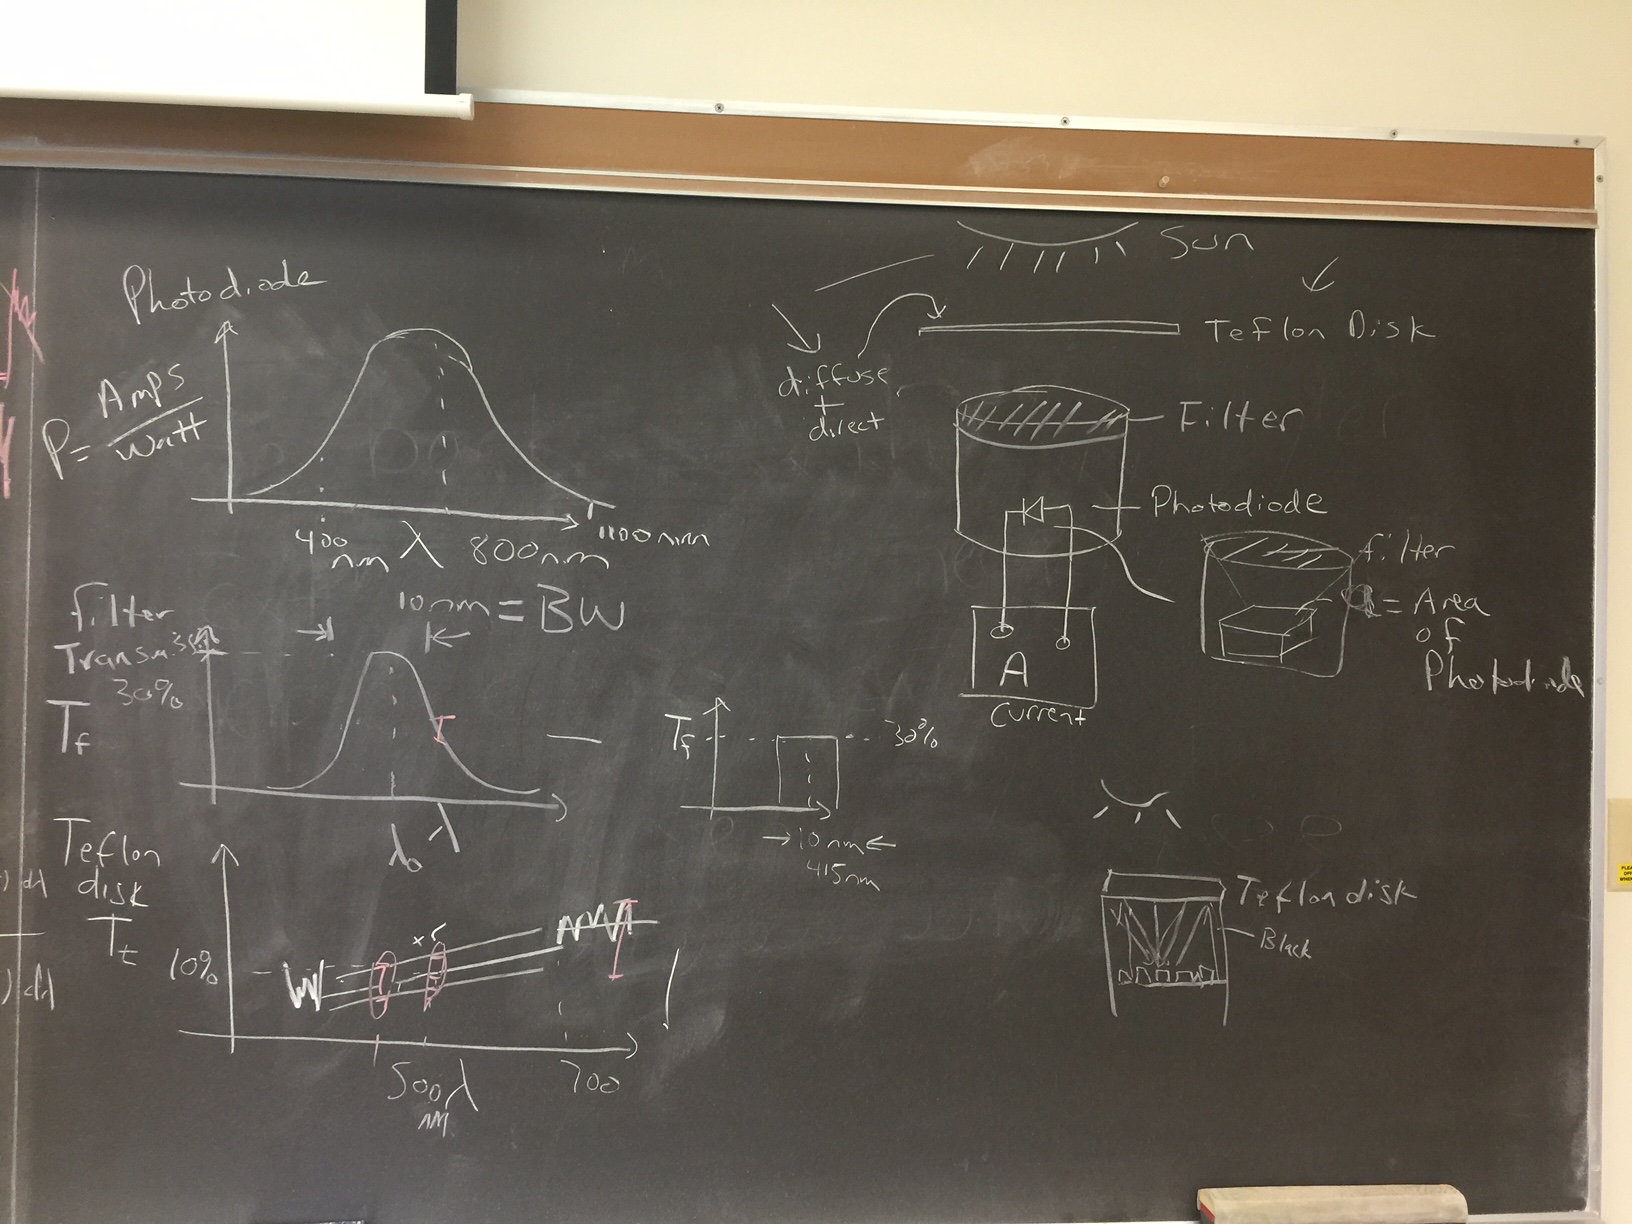 Photodiode
P = Amps
Watt
400
nm
λ
800nm
1100nm
filter
Transmiss
30%
Tf
10nm = BW
λ0
λ
Teflon
disk
Tt
10%
x5
500
nm
λ
700
Tf
30%
10nm
415nm
Sun
Teflon Disk
diffuse
+
direct
Filter
Photodiode
A
Current
filter
= Area
of
Photodiode
Teflon disk
Black
) dλ
) dλ